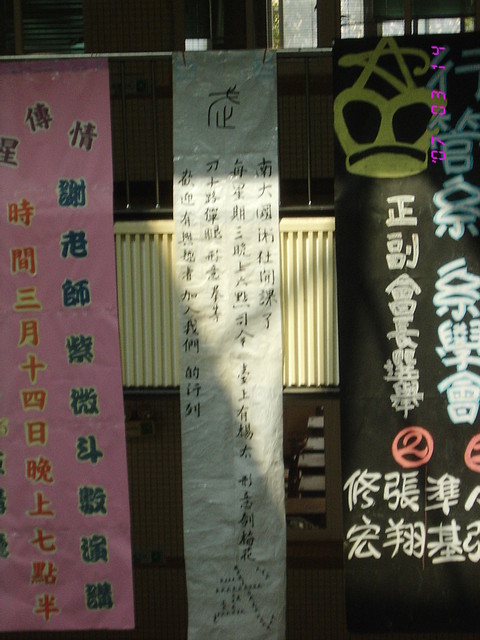 情
傳
星
謝老師紫微斗數演講
時間三月十四日晚上七點半
武
南大國術社開課了
每星期三晚上六點司令臺上有楊太 形意劍梅花
刀十路彈腿 形意拳等
歡迎有興趣者加入我們的行列
行管系 系學會
正副會長選舉
②
準基
張翔
修宏
'07 03 14